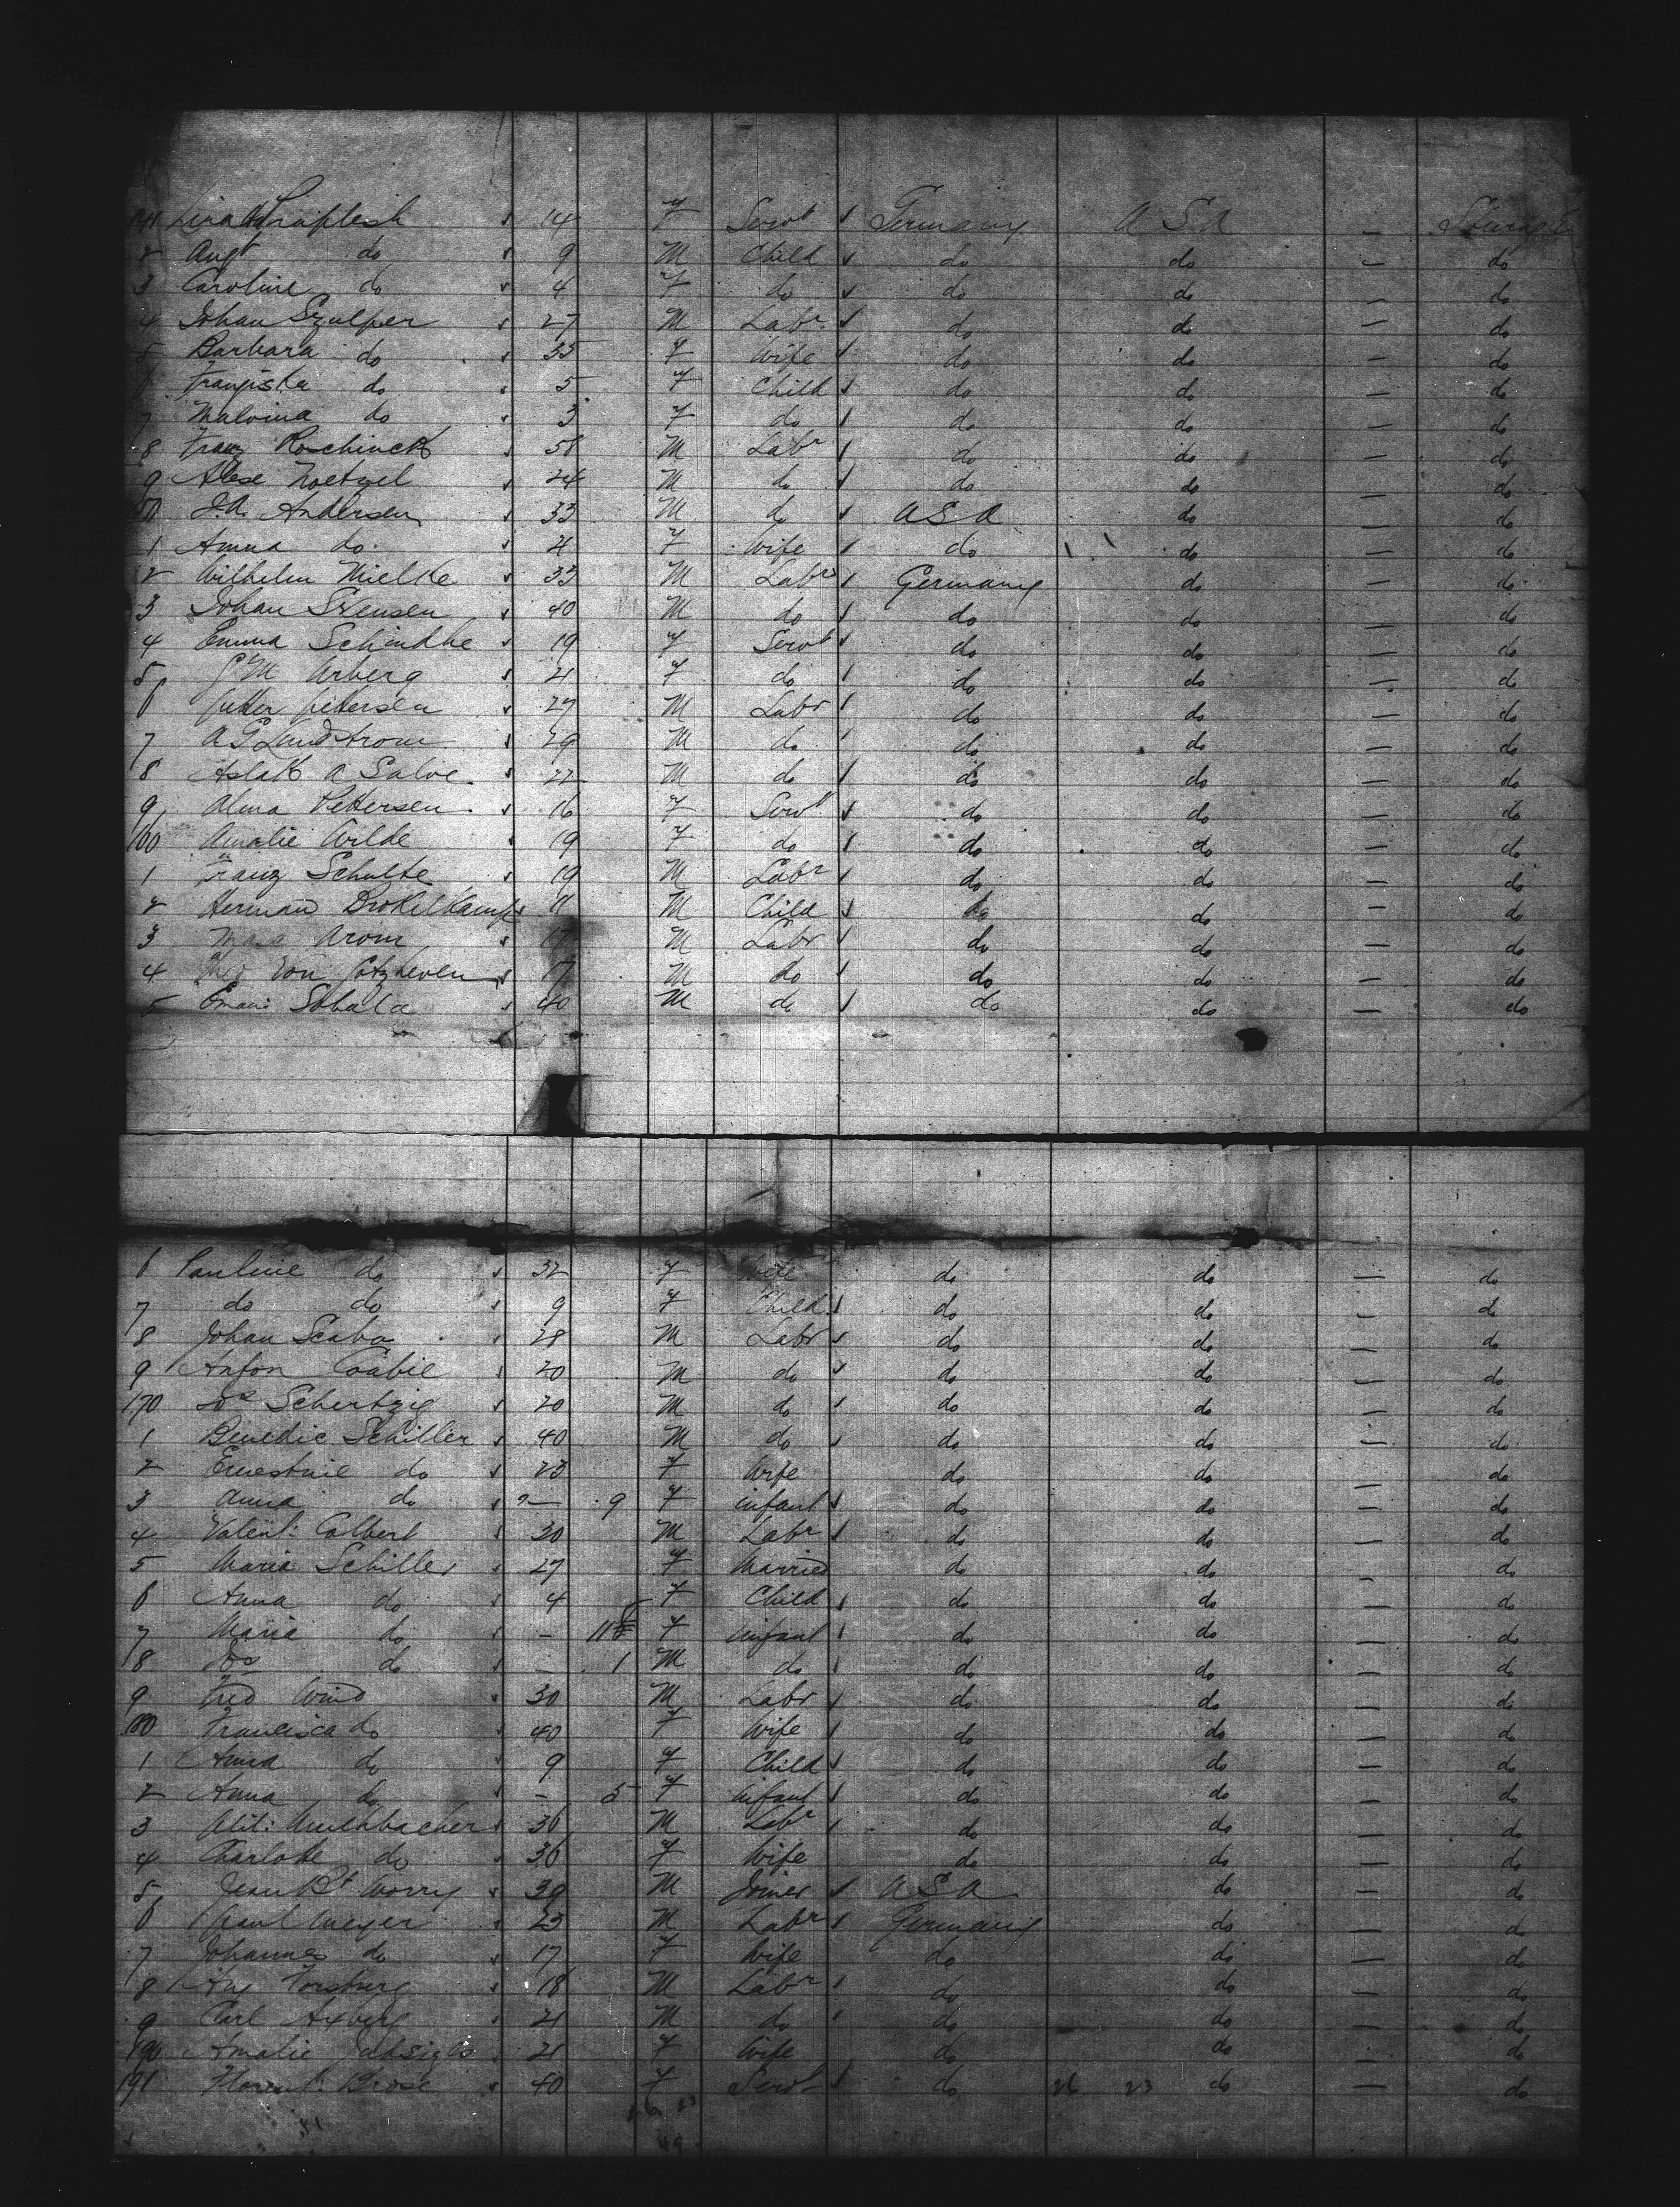 141 14 F Servt Germany USA — Steerage
2 Augt do 9 M Child do do — do
3 Caroline do 4 F do do do — do
4 Johan Szulper 27 M Labr do do — do
5 Barbara do 35 F Wife do do — do
6 Franziska do 5 F Child do do — do
7 Malvina do 3 F do do do — do
8 Franz Roschinck 58 M Labr do do — do
9 Alexe Noetzel 24 M do do do — do
150 J.A. Andersen 33 M do USA do — do
1 Amna do 21 F Wife do do — do
2 Wilhelm Mielke 33 M Labr Germany do — do
3 Johan Svensen 40 M do do do — do
4 Emma Schindhe 19 F Servt do do — do
5 P M Arberg 21 F do do do — do
6 Petter Pettersen 27 M Labr do do — do
7 A G Lundstrom 29 M do do do — do
8 Aslak A Salve 22 M do do do — do
9 Alma Pettersen 16 F Servt do do — do
160 Amalie Wilde 19 F do do do — do
1 Franz Schulte 19 M Labr do do — do
2 Herman Brokelkamp 11 M Child do do — do
3 Arom 17 M Labr do do — do
4 Von 17 M do do do — do
5 Sobala 40 M do do do — do
6 Pauline do 32 F Wife do do — do
7 do do 9 F Child do do — do
8 Johan Scaba 28 M Labr do do — do
9 Anton Coabie 20 M do do do — do
170 Jos Schertzig 20 M do do do — do
1 Benedic Schiller 40 M do do do — do
2 Ernestine do 23 F Wife do do — do
3 Anna do — 9 F infant do do — do
4 Valent: Colbert 30 M Labr do do — do
5 Maria Schiller 27 F Married do do — do
6 Anna do 4 F Child do do — do
7 Maria do — 11 F infant do do — do
8 Jos do — 1 M do do do — do
9 Fred Wind 30 M Labr do do — do
180 Francisca do 40 F Wife do do — do
1 Anna do 9 F Child do do — do
2 Anna do — 5 F infant do do — do
3 Muehbacher 36 M Labr do do — do
4 Charlotte do 36 F Wife do do — do
5 Jean Bt Worry 39 M Joiner USA do — do
6 Paul Meyer 23 M Labr Germany do — do
7 Johanna do 17 F Wife do do — do
8 Aug Forsberg 18 M Labr do do — do
9 Carl Axberg 21 M do do do — do
190 Amalie 21 F Wife do do — do
191 Florent: Brose 40 F Servt do 26 23 do — do